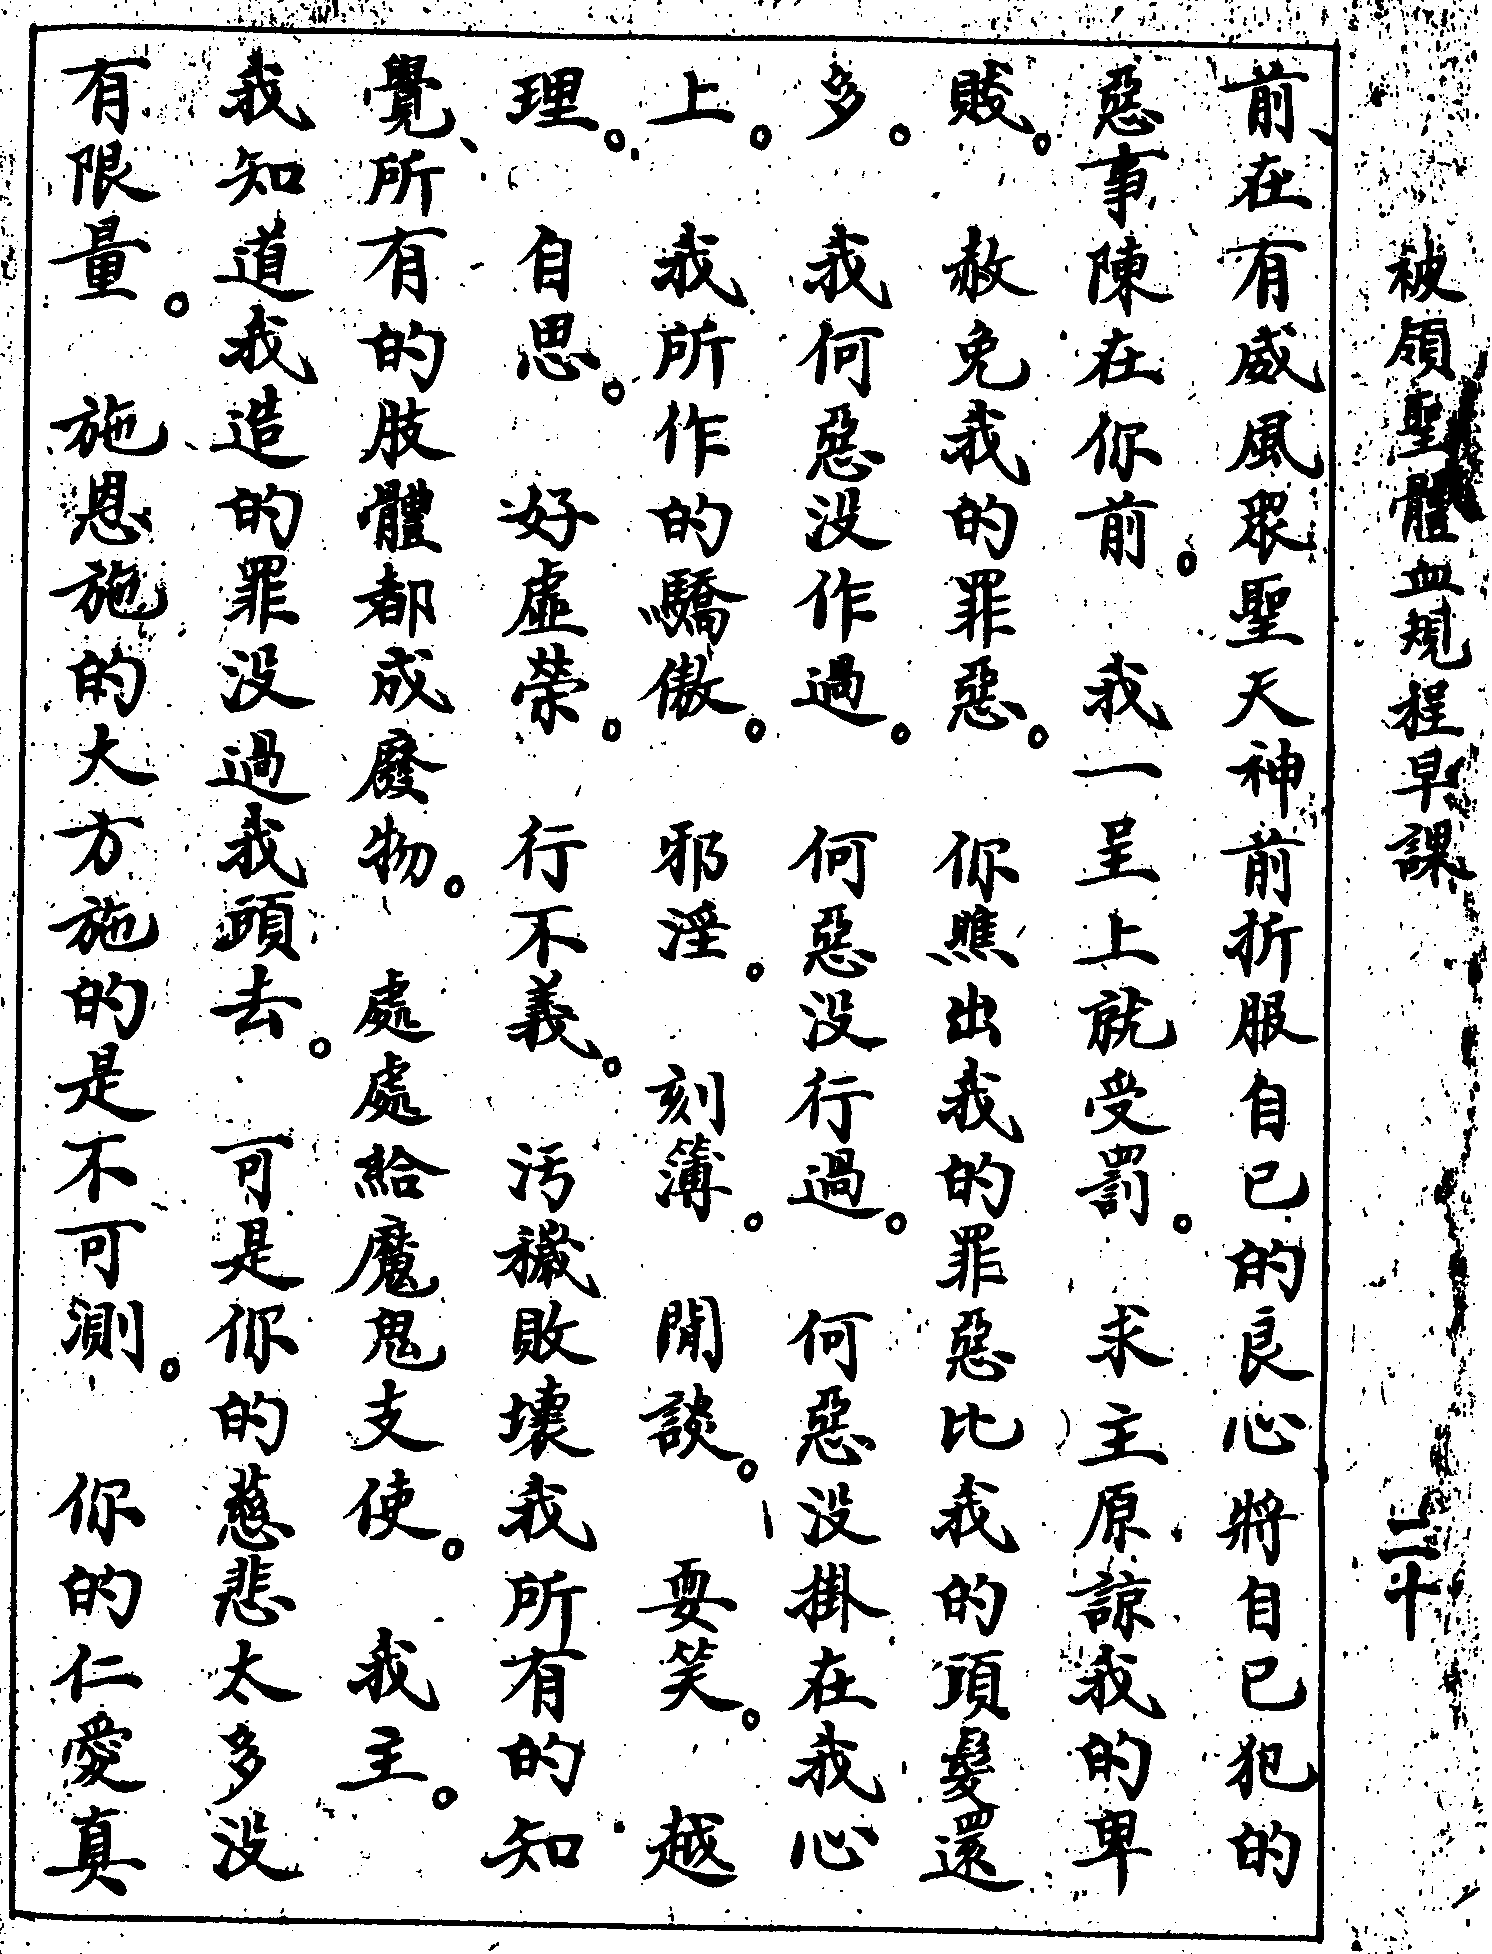 被領聖體血規程早課 二十
前、在有威風眾聖天神前折服自己的良心將自己犯的
惡事陳在你前。 我一呈上就受罰。 求主原諒我的卑
賤。 赦免我的罪惡。 你瞧出我的罪惡比我的頭髮還
多。 我何惡沒作過。 何惡沒行過。 何惡沒掛在我心
上。 我所作的驕傲。 邪淫。 刻簿。 閒談。 耍笑。 越
理。 自思。 好虛榮。 行不義。 污穢敗壞我所有的知
覺、所有的肢體都成廢物。 處處給魔鬼支使。 我主。
我知道我造的罪沒過我頭去。 可是你的慈悲太多沒
有限量。 施恩施的大方施的是不可測。 你的仁愛真